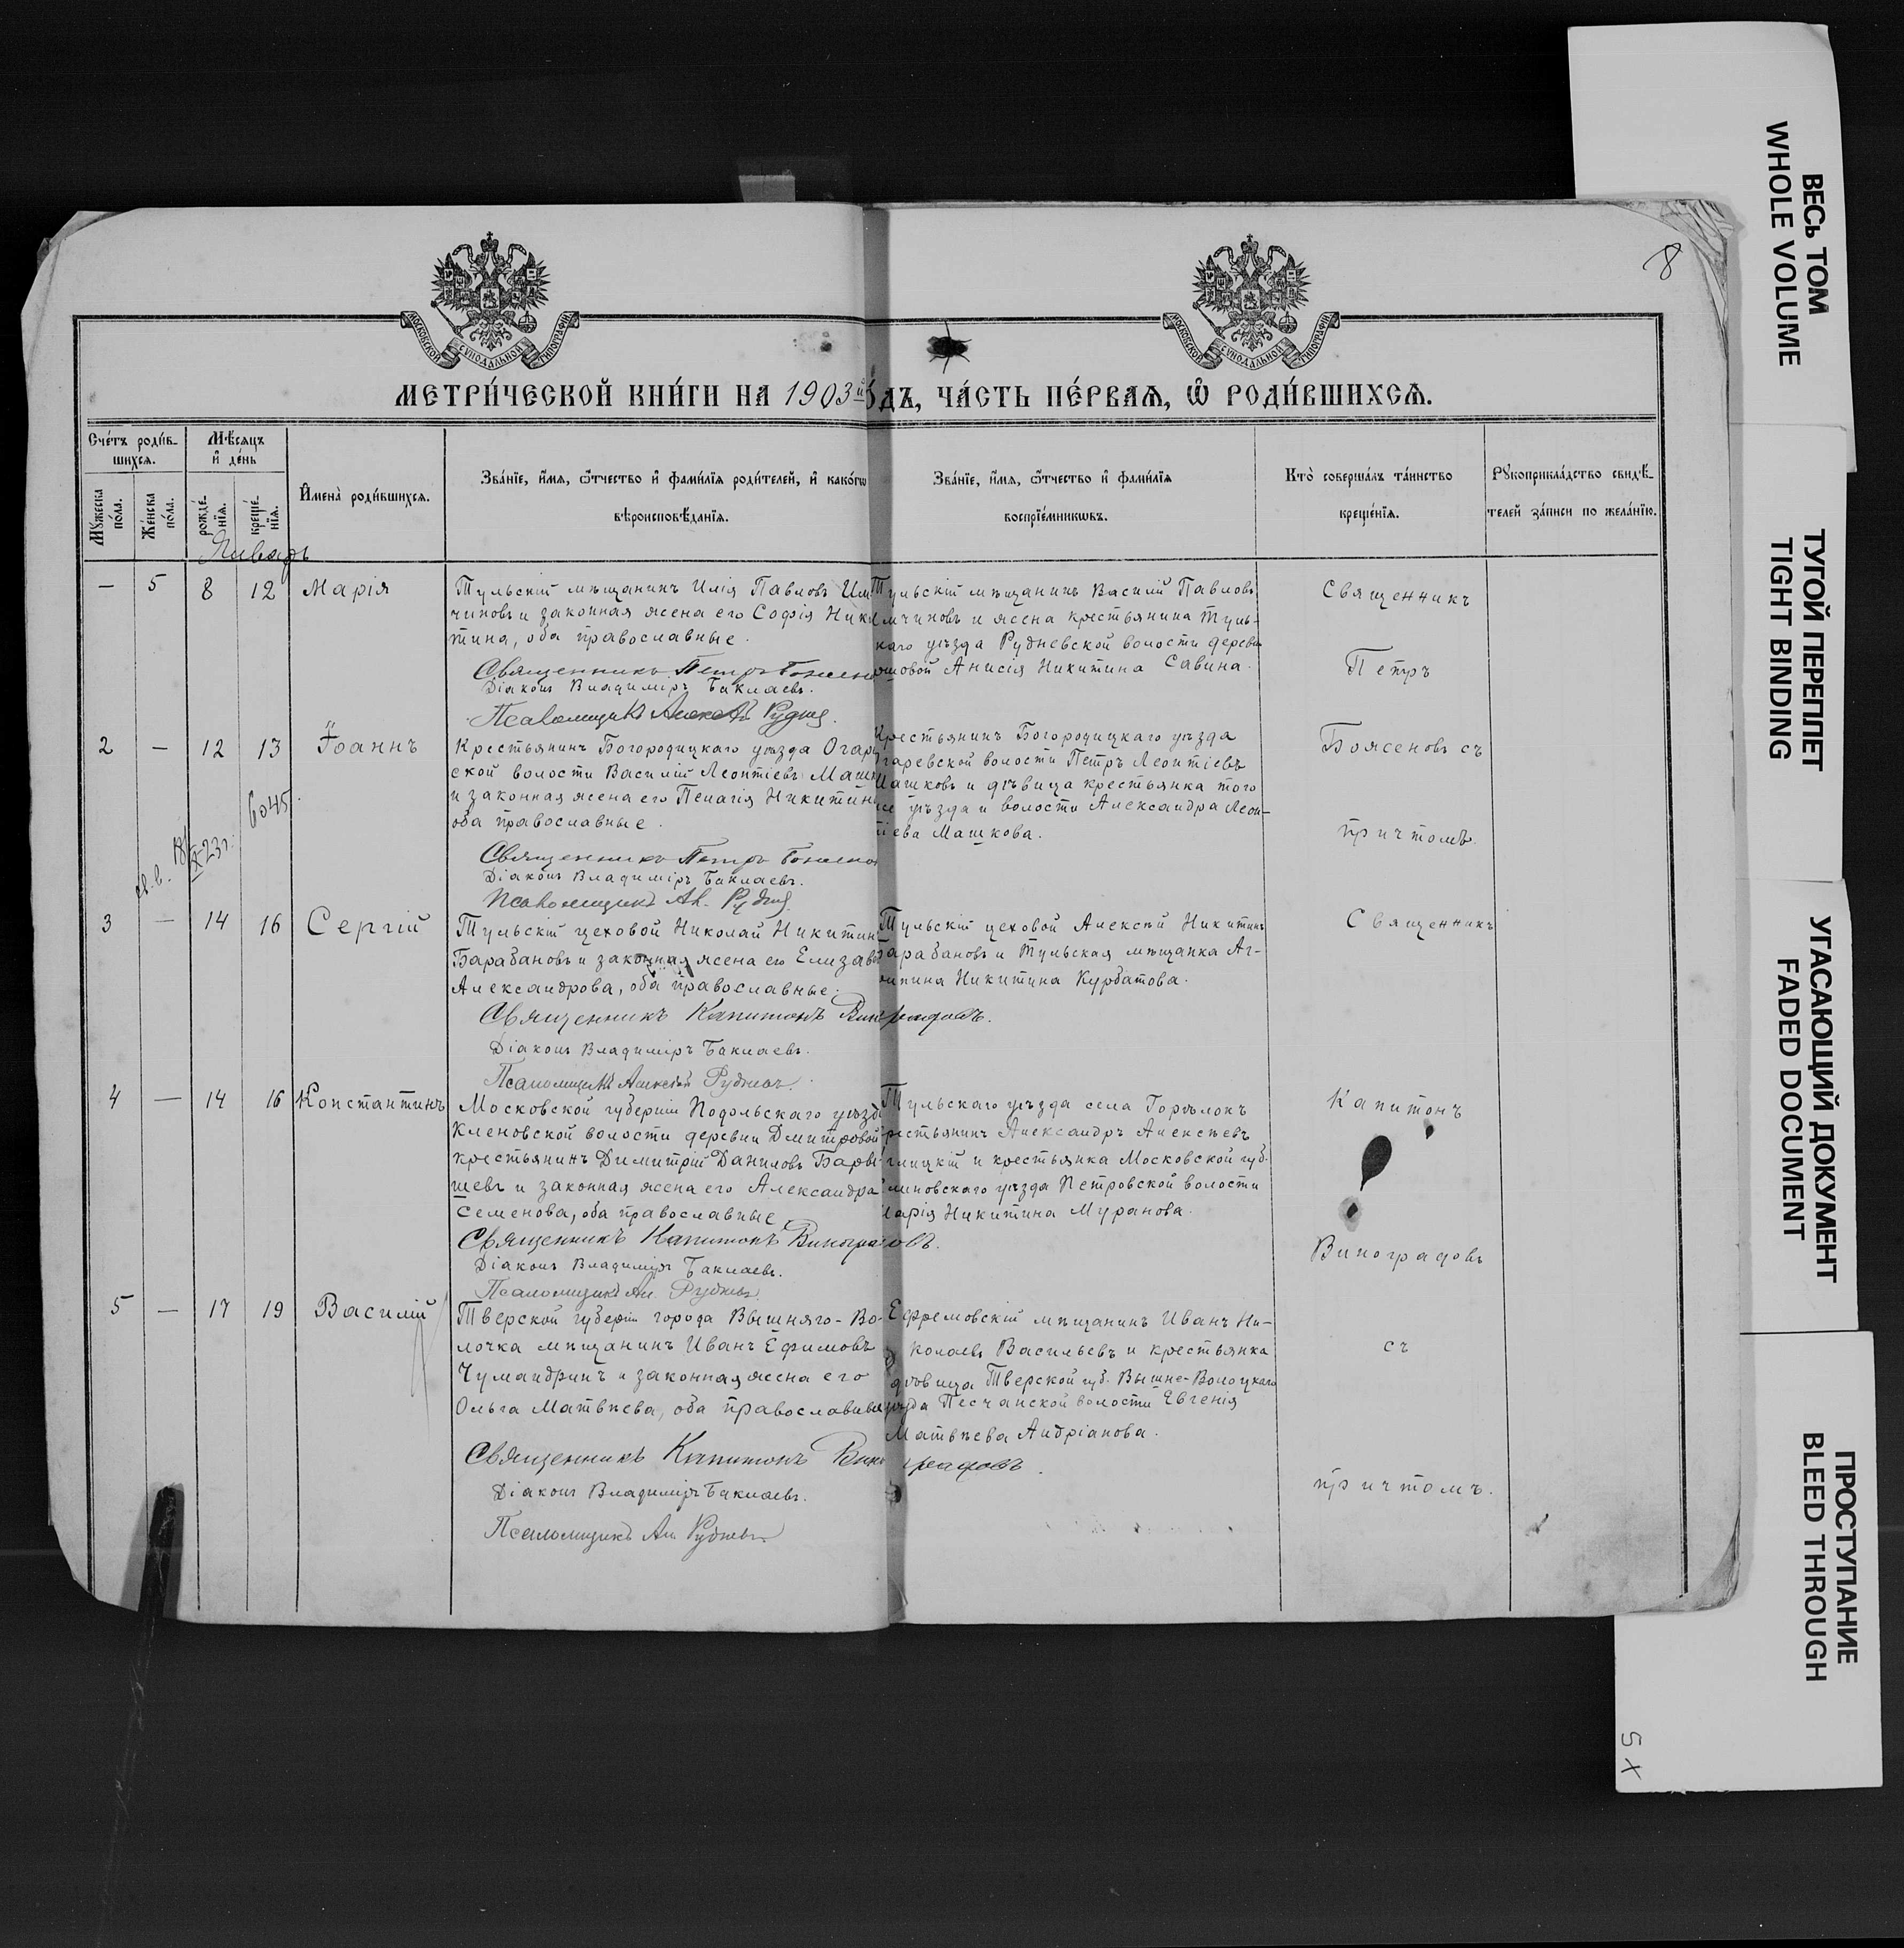 ВЕСЬ ТОМ
WHOLE VOLUME
ТУГОЙ ПЕРЕПЛЕТ
TIGHT BINDING
УГАСАЮЩИЙ ДОКУМЕНТ
FADED DOCUMENT
ПРОСТУПАНИЕ
BLEED THROUGH
5 X
8
МОСКОВСКОЙ СѴНОДАЛЬНОЙ ТИПОГРАФІИ
МОСКОВСКОЙ СѴНОДАЛЬНОЙ ТИПОГРАФІИ
МЕТРИ́ЧЕСКОЙ КНИ́ГИ НА 1903й
ДЪ, ЧА́СТЬ ПЕ́РВАѦ, Ѡ҆ РОДИ́ВШИХСѦ.
Сче́тъ роди́в-
шихся.
Мꙋжеска по́ла.
Же́нска по́ла.
Мѣ́сяцъ
и҆ де́нь
рожде́-
нїя.
креще́-
нїя.
И҆мена̀ роди́вшихся.
Зва́нїе, и҆́мя, ѻ҆́тчество и҆ фами́лїя роди́телей, и҆ како́гѡ
вѣроисповѣ́данїя.
Зва́нїе, и҆́мя, ѻ҆́тчество и҆ фами́лїя
воспрїе́мникѡвъ.
Кто̀ соверша́лъ та́инство
креще́нїя.
Рꙋкоприкла́дство свидѣ́-
телей за́писи по жела́нїю.
Январь
— 5 8 12 Марія
Тульскій мѣщанинъ Илія Павловъ
чиновъ и законная жена его Софія Ники
тина, оба православные.
Священникъ Петръ
Діаконъ Владиміръ Баклаевъ.
Псаломщикъ Алексѣй
Тульскій мѣщанинъ Василій Павловъ
чиновъ и жена крестьянина Туль-
каго уѣзда Рудневской волости деревни
шовой Анисія Никитина Савина.
Священникъ
Петръ
2 — 12 13 Іоаннъ
Крестьянинъ Богородицкаго уѣзда Огар
ской волости Василій Леонтіевъ Маш
и законная жена его Пелагія Никитин
оба православные.
Священникъ Петръ
Діаконъ Владиміръ Баклаевъ.
Псаломщикъ Ал.
6045
Х-23г.
Крестьянинъ Богородицкаго уѣзда
гаревской волости Петръ Леонтіевъ
Машковъ и дѣвица крестьянка того
же уѣзда и волости Александра Леон-
тіева Машкова.
Боженовъ съ
причтомъ.
3 — 14 16 Сергій
Тульскій цеховой Николай Никитин
Барабановъ и законная жена его Елизав
Александрова, оба православные.
Священникъ Капитонъ Виноградовъ.
Діаконъ Владиміръ Баклаевъ.
Псаломщикъ Алексѣй Рудневъ.
Тульскій цеховой Алексѣй Никитинъ
арабановъ и Тульская мѣщанка Аг-
рипина Никитина Курбатова.
Священникъ
4 — 14 16 Константинъ
Московской губерніи Подольскаго уѣзд
Кленовской волости деревни Дмитровой
крестьянинъ Димитрій Даниловъ Бары
шевъ и законная жена его Александра
Семенова, оба православные.
Священникъ Капитонъ Виноградовъ.
Діаконъ Владиміръ Баклаевъ.
Псаломщикъ Ал. Рудневъ.
Тульскаго уѣзда села Горѣлокъ
рестьянинъ Александръ Алексѣевъ
глицкій и крестьянка Московской губ.
линовскаго уѣзда Петровской волости
Марія Никитина Муранова.
Капитонъ
Виноградовъ
5 — 17 19 Василій
Тверской губерніи города Вышняго-Во-
лочка мѣщанинъ Иванъ Ефимовъ
Чумандринъ и законная жена его
Ольга Матвѣева, оба православные
Священникъ Капитонъ Виноградовъ.
Діаконъ Владиміръ Баклаевъ.
Псаломщикъ Ал. Рудневъ.
Ефремовскій мѣщанинъ Иванъ Ни-
колаевъ Васильевъ и крестьянка
дѣвица Тверской губ. Вышне-Волоцкаго
уѣзда Песчанской волости Евгенія
Матвѣева Андріанова.
съ
причтомъ.